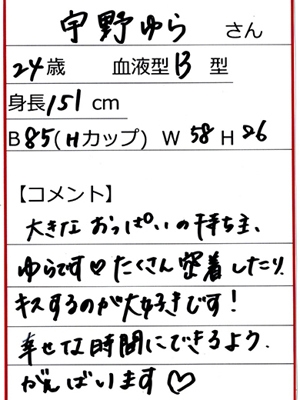 宇野ゆら さん
24歳 血液型 B 型
身長 151 cm
B 85(Hカップ) W 58 H 86
【コメント】
大きなおっぱいの持ち主、
ゆらです♡たくさん密着したり
キスするのが大好きです!
幸せな時間にできるよう、
がんばります♡